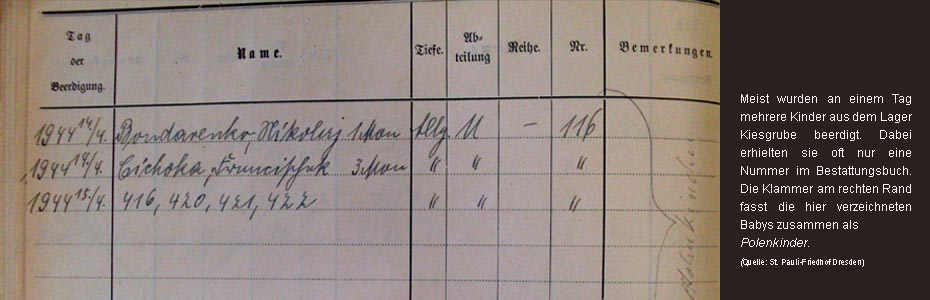 Tag der Beerdigung. Name. Tiefe. Abteilung Reihe. Nr. Bemerkungen.
1944 14/4. Bondarenko, Nikolurj 1 Mon Allg. U — 116
1944 14/4. Cichoka, Francischek 3 Mon " " "
1944 15/4. 416, 420, 421, 422 " " "
Polenkinder
Meist wurden an einem Tag
mehrere Kinder aus dem Lager
Kiesgrube beerdigt. Dabei
erhielten sie oft nur eine
Nummer im Bestattungsbuch.
Die Klammer am rechten Rand
fasst die hier verzeichneten
Babys zusammen als
Polenkinder.
(Quelle: St. Pauli-Friedhof Dresden)